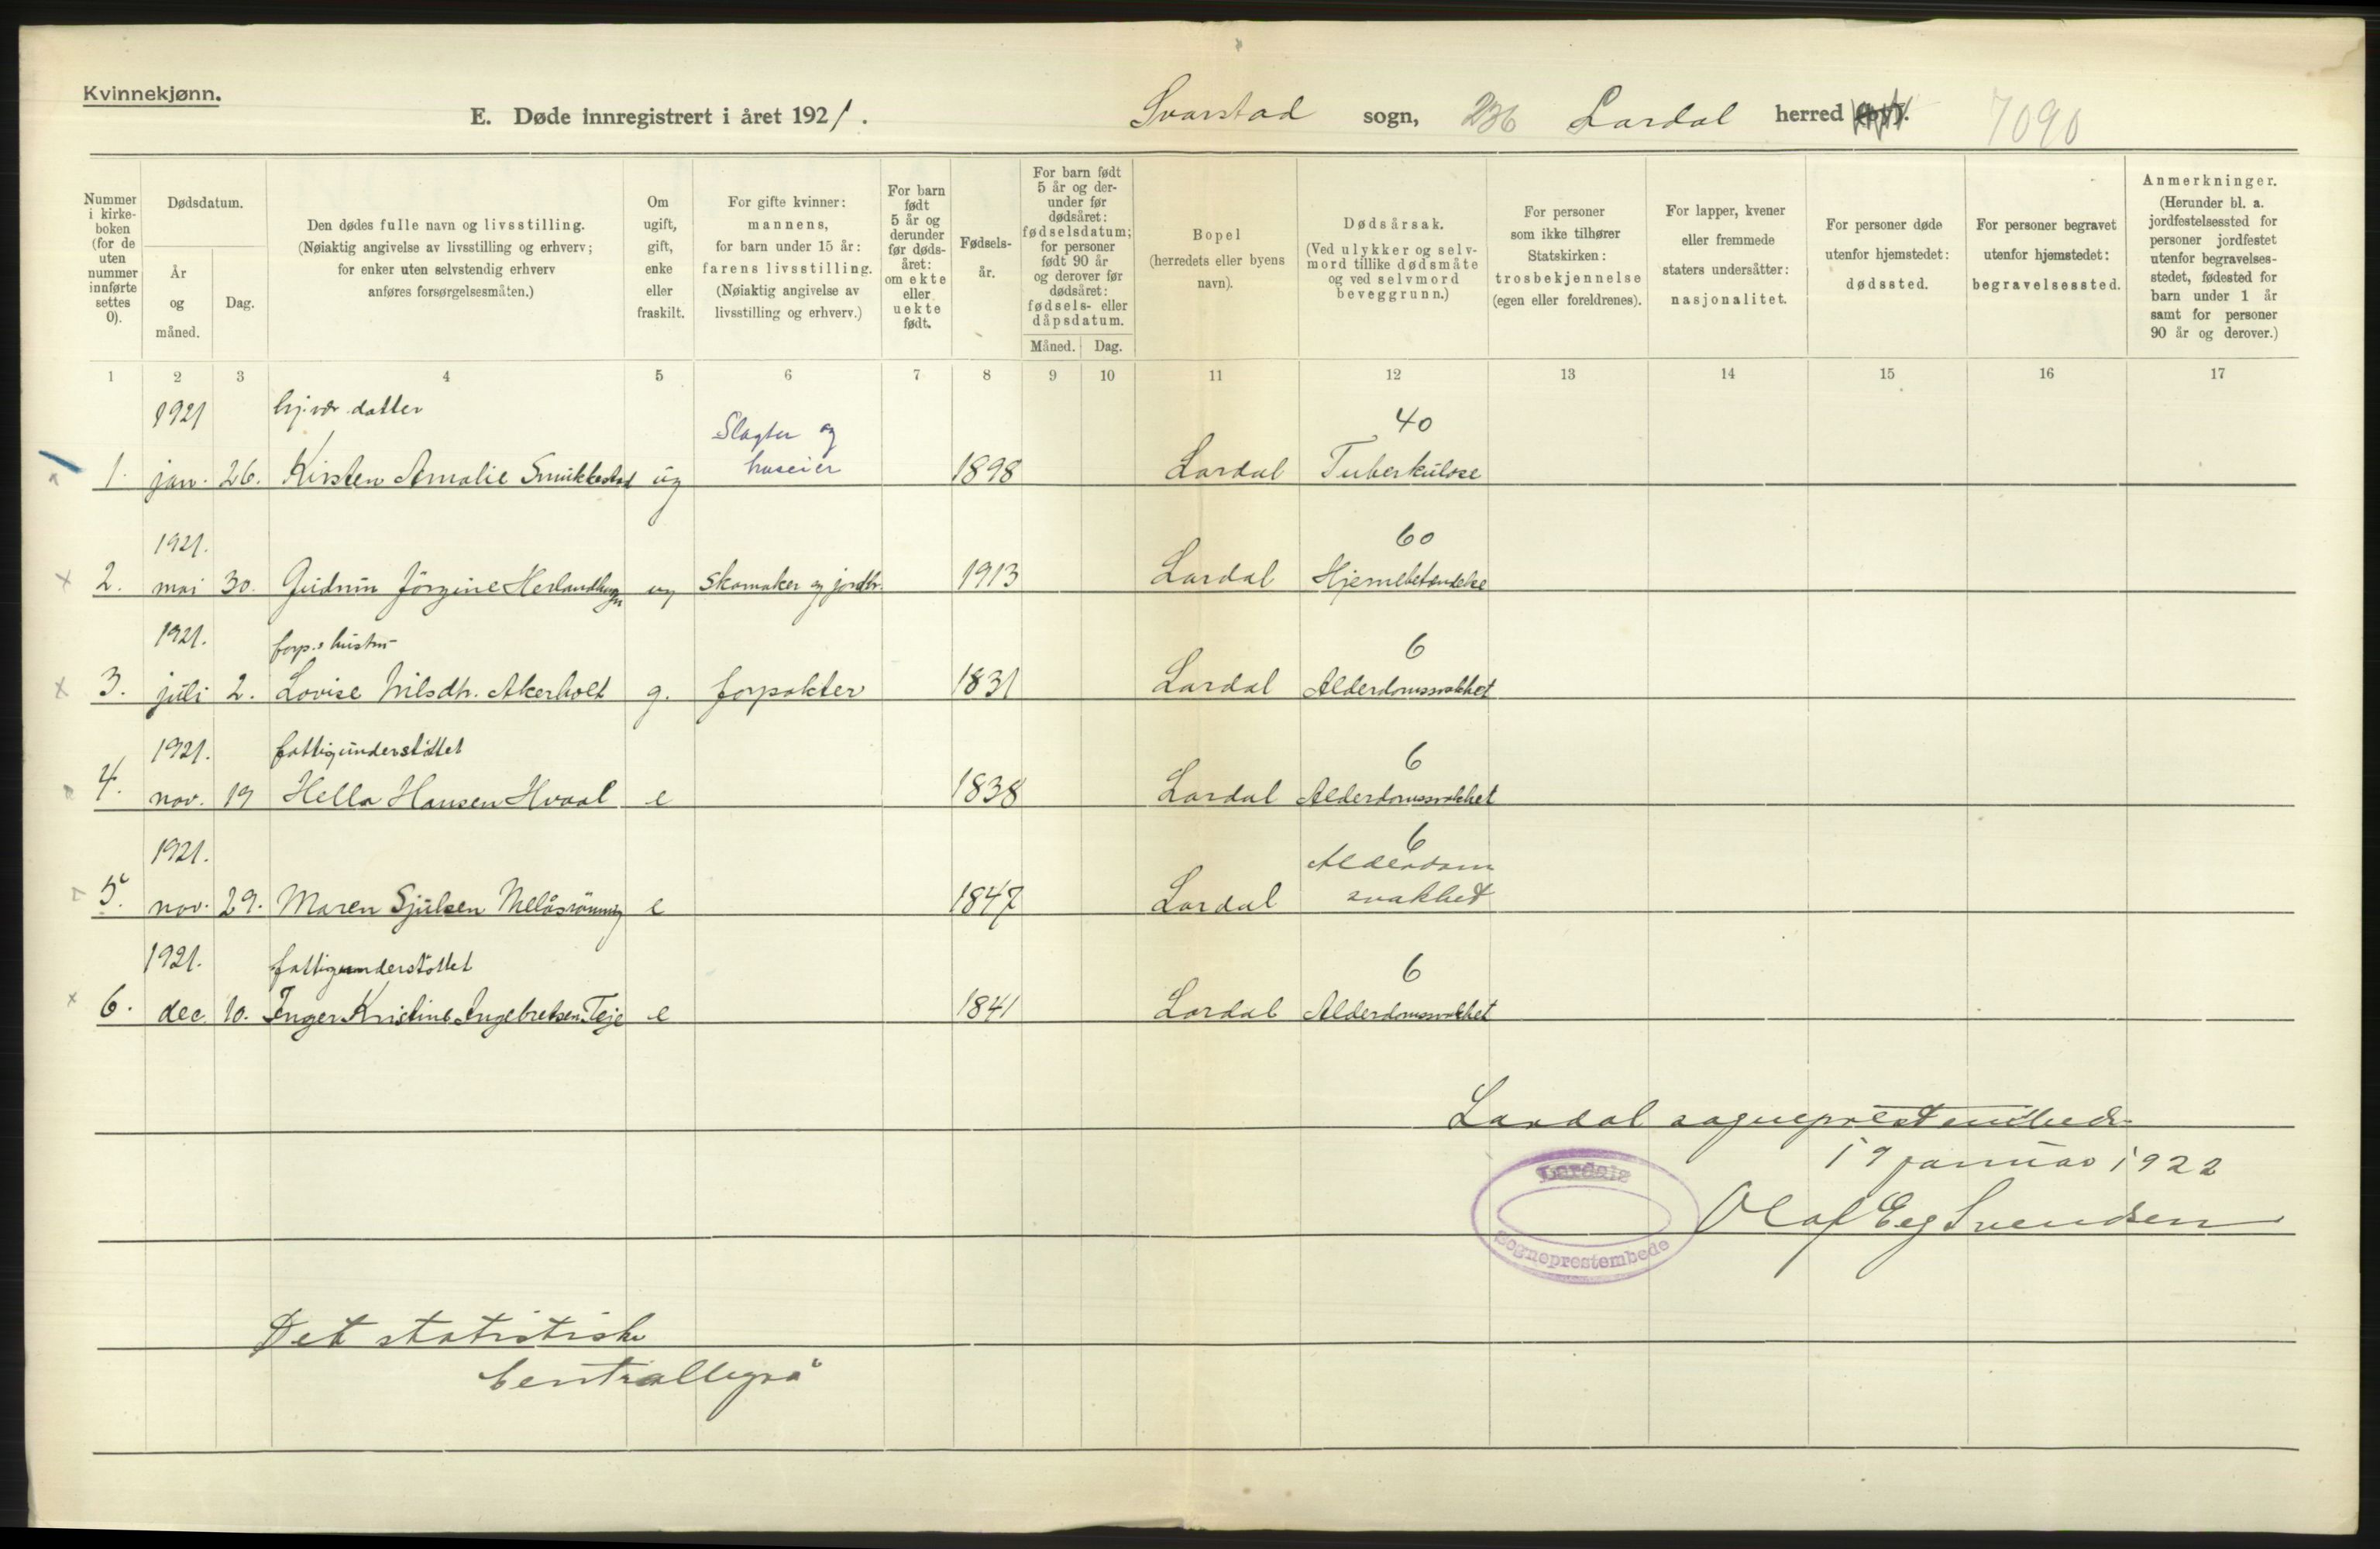 Kvinnekjønn.
E. Døde innregistrert i året 1921. Svarstad sogn, 236 Lardal herred (by). 7090
Nummer i kirke-boken (for de uten nummer innførte settes 0).
Dødsdatum.
År og måned.
Dag.
Den dødes fulle navn og livsstilling.
(Nøiaktig angivelse av livsstilling og erhverv;
for enker uten selvstendig erhverv
anføres forsørgelsesmåten.)
Om ugift, gift, enke eller fraskilt.
For gifte kvinner:
mannens,
for barn under 15 år:
farens livsstilling.
(Nøiaktig angivelse av
livsstilling og erhverv.)
For barn født 5 år og derunder før døds-året: om ekte eller uekte født.
Fødsels-år.
For barn født 5 år og der-under før dødsåret: fødselsdatum; for personer født 90 år og derover før dødsåret: fødsels- eller dåpsdatum.
Måned. Dag.
Bopel
(herredets eller byens
navn).
Dødsårsak.
(Ved ulykker og selv-
mord tillike dødsmåte
og ved selvmord
beveggrunn.)
For personer
som ikke tilhører
Statskirken:
trosbekjennelse
(egen eller foreldrenes).
For lapper, kvener
eller fremmede
staters undersåtter:
nasjonalitet.
For personer døde
utenfor hjemstedet:
dødssted.
For personer begravet
utenfor hjemstedet:
begravelsessted.
Anmerkninger.
(Herunder bl. a.
jordfestelsessted for
personer jordfestet
utenfor begravelses-
stedet, fødested for
barn under 1 år
samt for personer
90 år og derover.)
1 2 3 4 5 6 7 8 9 10 11 12 13 14 15 16 17
1921 hj.vær. datter Slagter og 40
1. jan. 26. Kirsten Amalie Smukkestad ug huseier 1898 Lardal Tuberkulose
1921. 60
2. mai 30. Gudrun Jörgine Herlandhagen ug Skomaker og jordbr. 1913 Lardal Hjernebetendelse
1921. forp.s hustru 6
3. juli 2. Lovise Nilsdtr. Akerholt g. forpakter 1831 Lardal Alderdomssvakhet
1921. fattigunderstöttet 6
4. nov. 19 Hella Hansen Hvaal e 1838 Lardal Alderdomssvakhet
1921. 6 Alderdom
5. nov. 29. Maren Sjulsen Melåsrönning e 1847 Lardal svakhet
1921. fattigunderstöttet 6
6. dec. 10. Inger Kristine Engebretsen Teje e 1841 Lardal Alderdomssvakhet
Lardal sogneprestembede
19 januar 1922
Lardals
Sogneprestembede
Olaf Eeg Svendsen
Det statistiske
Centralbyrå